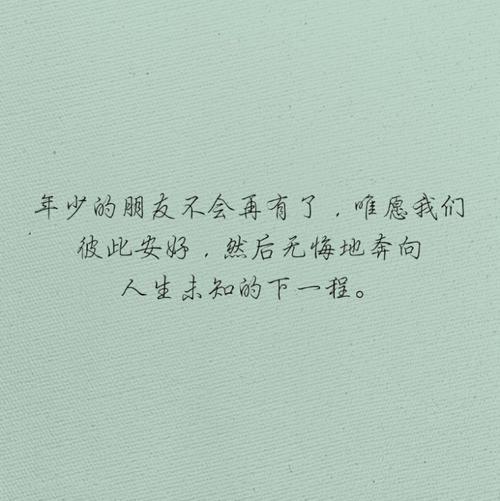 年少的朋友不会再有了，唯愿我们
彼此安好，然后无悔地奔向
人生未知的下一程。